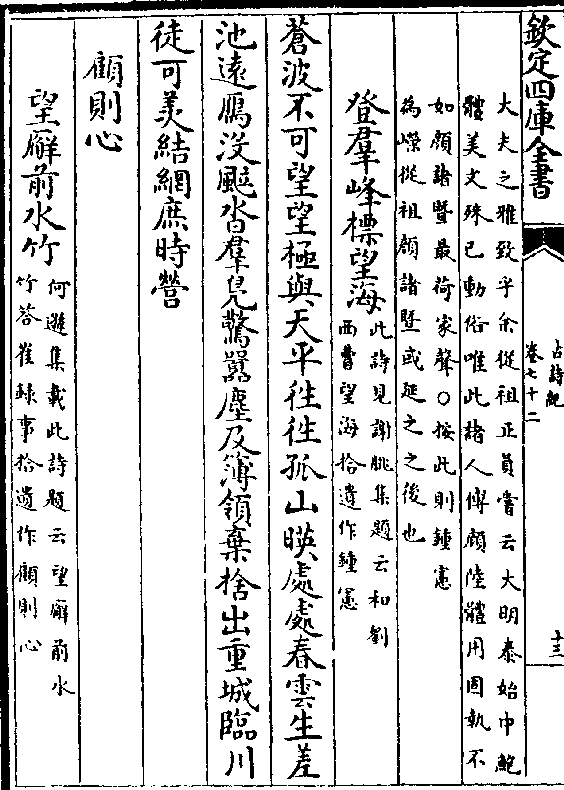 欽定四庫全書
古詩紀
卷七十二
十三
大夫之雅致乎余從祖正員嘗云大明泰始中鮑
體美文殊已動俗唯此諸人傅顔陸體用固執不
如顔諸暨最荷家聲○按此則鍾憲
為嶸從祖顔諸暨或延之之後也
登羣峰標望海
此詩見謝朓集題云和劉
西曹望海拾遺作鍾憲
蒼波不可望望極與天平徃徃孤山暎處處春雲生差
池遠鴈沒颸沓羣鳧驚囂塵及簿領棄捨出重城臨川
徒可羨結網庶時營
顧則心
望廨前水竹
何遜集載此詩題云望廨前水
竹荅崔錄事拾遺作顧則心